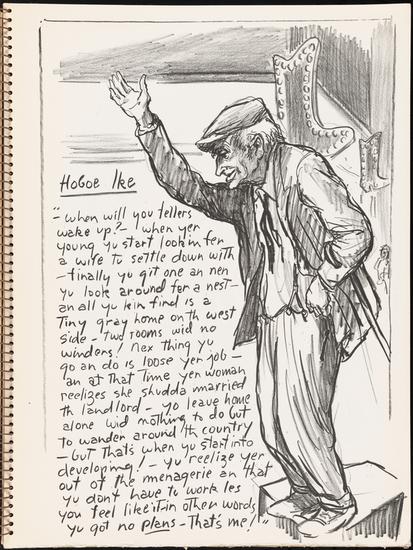 Hoboe Ike
"- when will you fellers
wake up? - when yer
young yu start lookin fer
a wife to settle down with
- finally yu git one an nen
yu look around for a nest -
an all yu kin find is a
Tiny gray home on th west
side - two rooms wid no
winders! Nex thing yu
go an do is loose yer job -
'an at that time yer woman
reelizes she shudda married
th landlord - yo leave home
alone wid nothing to do but
to wander around th country
- but that's when yu start into
developing! - yu reelize yer
out of the menagerie an that
yu don't have to work les
you feel like it - in other words
yu got no plans - That's me!"